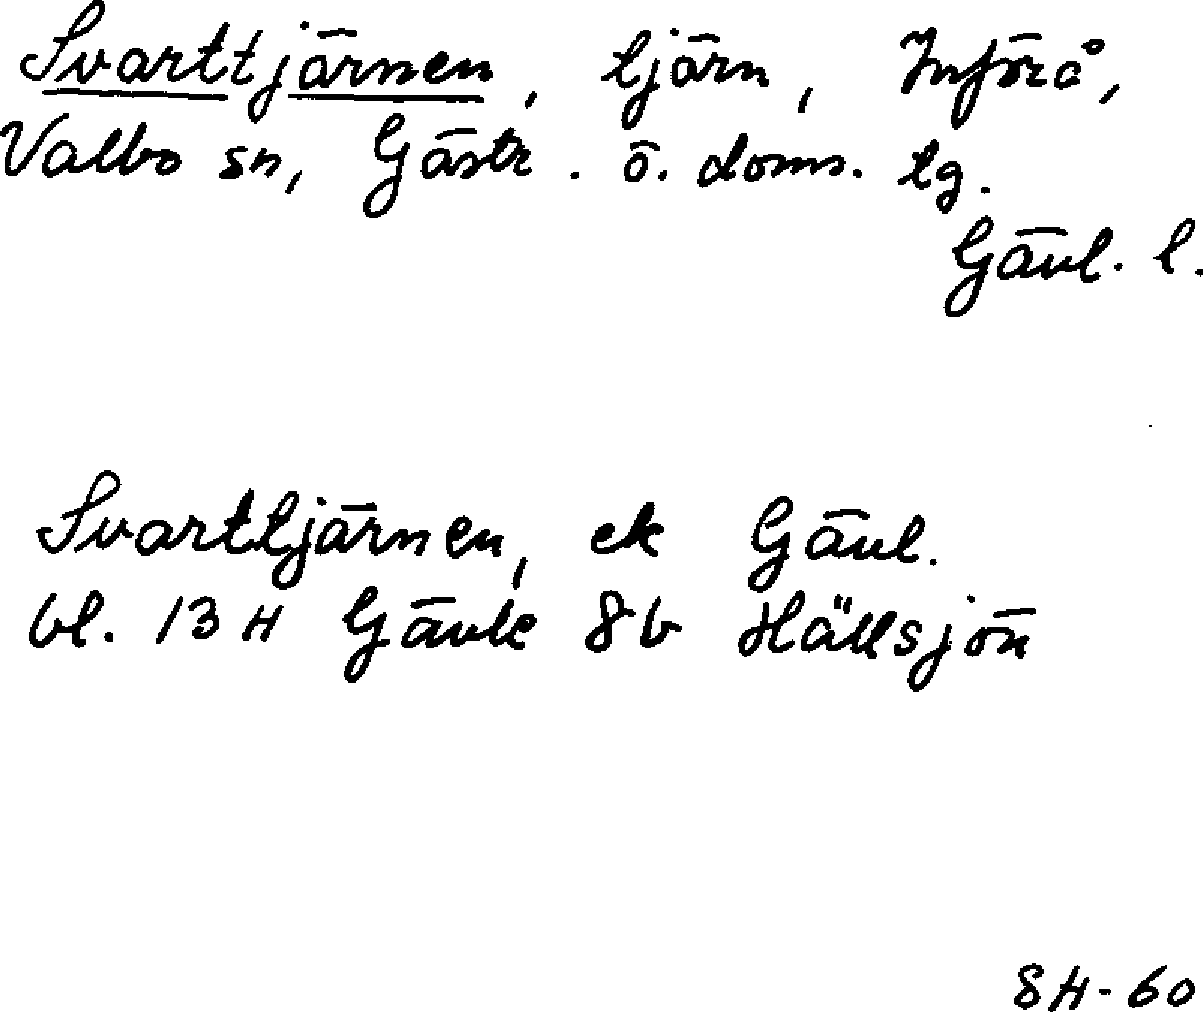 Svarttjärnen, tjärn, Införå,
Valbo sn, Gästr. ö. doms. tg.
Gävl. l.
Svarttjärnen, ek Gävl.
bl. 13 H Gävle 8b Hällsjön
SH-60